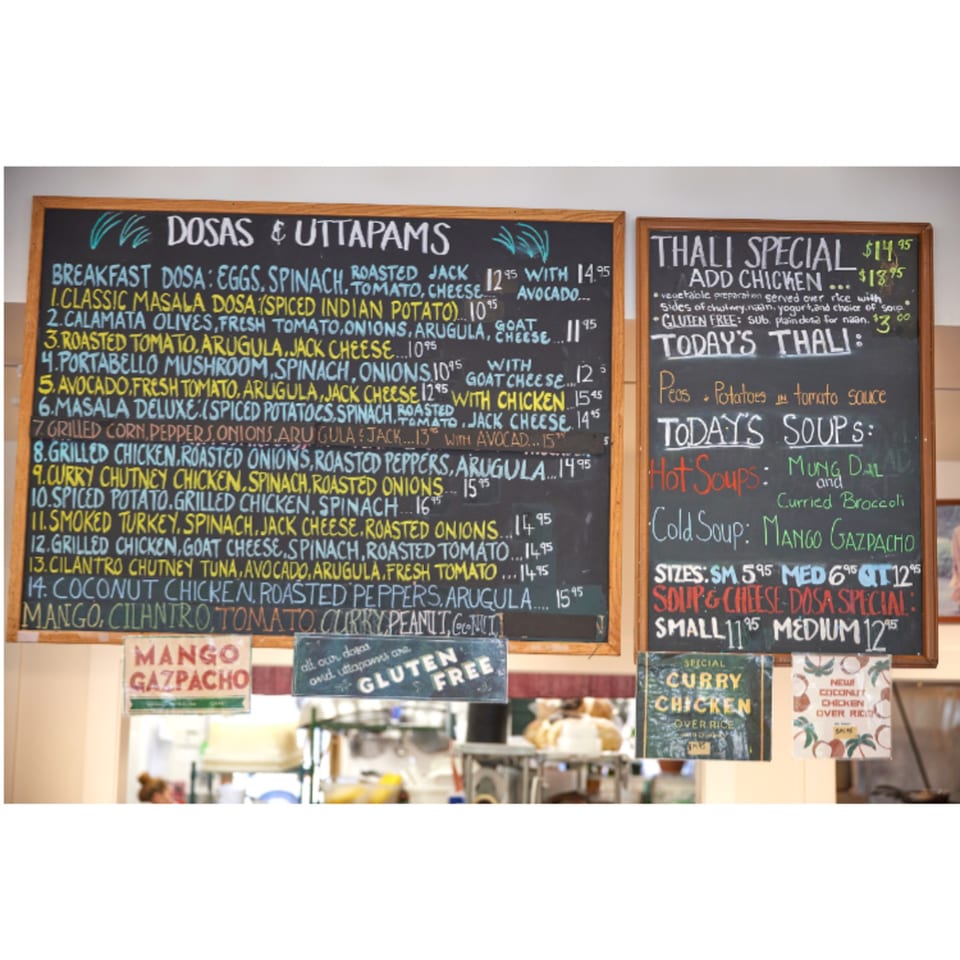 DOSAS & UTTAPAMS
BREAKFAST DOSA: EGGS, SPINACH, ROASTED JACK TOMATO, CHEESE 12.95 WITH AVOCADO... 14.95
1. CLASSIC MASALA DOSA: (SPICED INDIAN POTATO)... 10.95
2. CALAMATA OLIVES, FRESH TOMATO, ONIONS, ARUGULA, GOAT CHEESE... 11.95
3. ROASTED TOMATO, ARUGULA, JACK CHEESE... 10.95
4. PORTABELLO MUSHROOM, SPINACH, ONIONS 10.95 WITH GOAT CHEESE... 12
5. AVOCADO, FRESH TOMATO, ARUGULA, JACK CHEESE 12.95 WITH CHICKEN... 15.45
6. MASALA DELUXE: (SPICED POTATOES, SPINACH, ROASTED TOMATO, JACK CHEESE 14.95
7. GRILLED CORN, PEPPERS, ONIONS, ARUGULA & JACK... 13 WITH AVOCAD... 15
8. GRILLED CHICKEN, ROASTED ONIONS, ROASTED PEPPERS, ARUGULA... 14.95
9. CURRY CHUTNEY CHICKEN, SPINACH, ROASTED ONIONS... 15.95
10. SPICED POTATO, GRILLED CHICKEN, SPINACH... 16.95
11. SMOKED TURKEY, SPINACH, JACK CHEESE, ROASTED ONIONS... 14.95
12. GRILLED CHICKEN, GOAT CHEESE, SPINACH, ROASTED TOMATO... 14.95
13. CILANTRO CHUTNEY TUNA, AVOCADO, ARUGULA, FRESH TOMATO... 14.95
14. COCONUT CHICKEN, ROASTED PEPPERS, ARUGULA.... 15.95
MANGO, CILANTRO, TOMATO, CURRY, PEANUT, COCONUT
THALI SPECIAL $14.95
ADD CHICKEN ... $18.95
• vegetable preparation served over rice with
sides of chutney, naan, yogurt, and choice of soup •
• GLUTEN FREE: Sub. plain dosa for naan. $3.00
TODAY'S THALI:
Peas & Potatoes in tomato sauce
TODAY'S SOUPS:
Hot Soups: MUNG DAL
and
Curried Broccoli
Cold Soup: MANGO GAZPACHO
SIZES: SM 5.95 MED 6.95 QT 12.95
SOUP & CHEESE-DOSA SPECIAL:
SMALL 11.95 MEDIUM 12.95
MANGO
GAZPACHO
all our dosas
and uttapams are
GLUTEN
FREE
SPECIAL
CURRY
CHICKEN
OVER RICE
NEW!
COCONUT
CHICKEN
OVER RICE